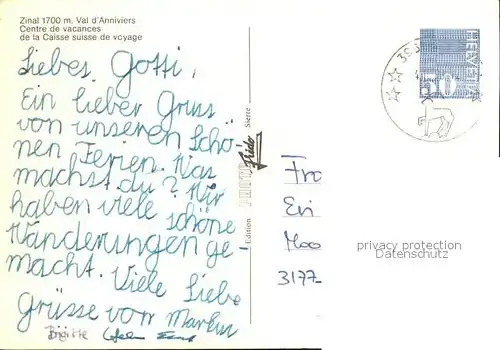 Zinal 1700 m. Val d'Anniviers
Centre de vacances
de la Caisse suisse de voyage
Liebes Gotti,
Ein lieber Gruss
von unseren Schö-
nen Ferien. Was
machst du? Wir
haben viele schöne
Wanderungen ge-
macht. Viele Liebe
Grüsse von Markus
Brigitte
Edition
PHOTO
Frido
Sierre
HELVETIA
50
Fra
Eri
Moo
3177
privacy protection
Datenschutz